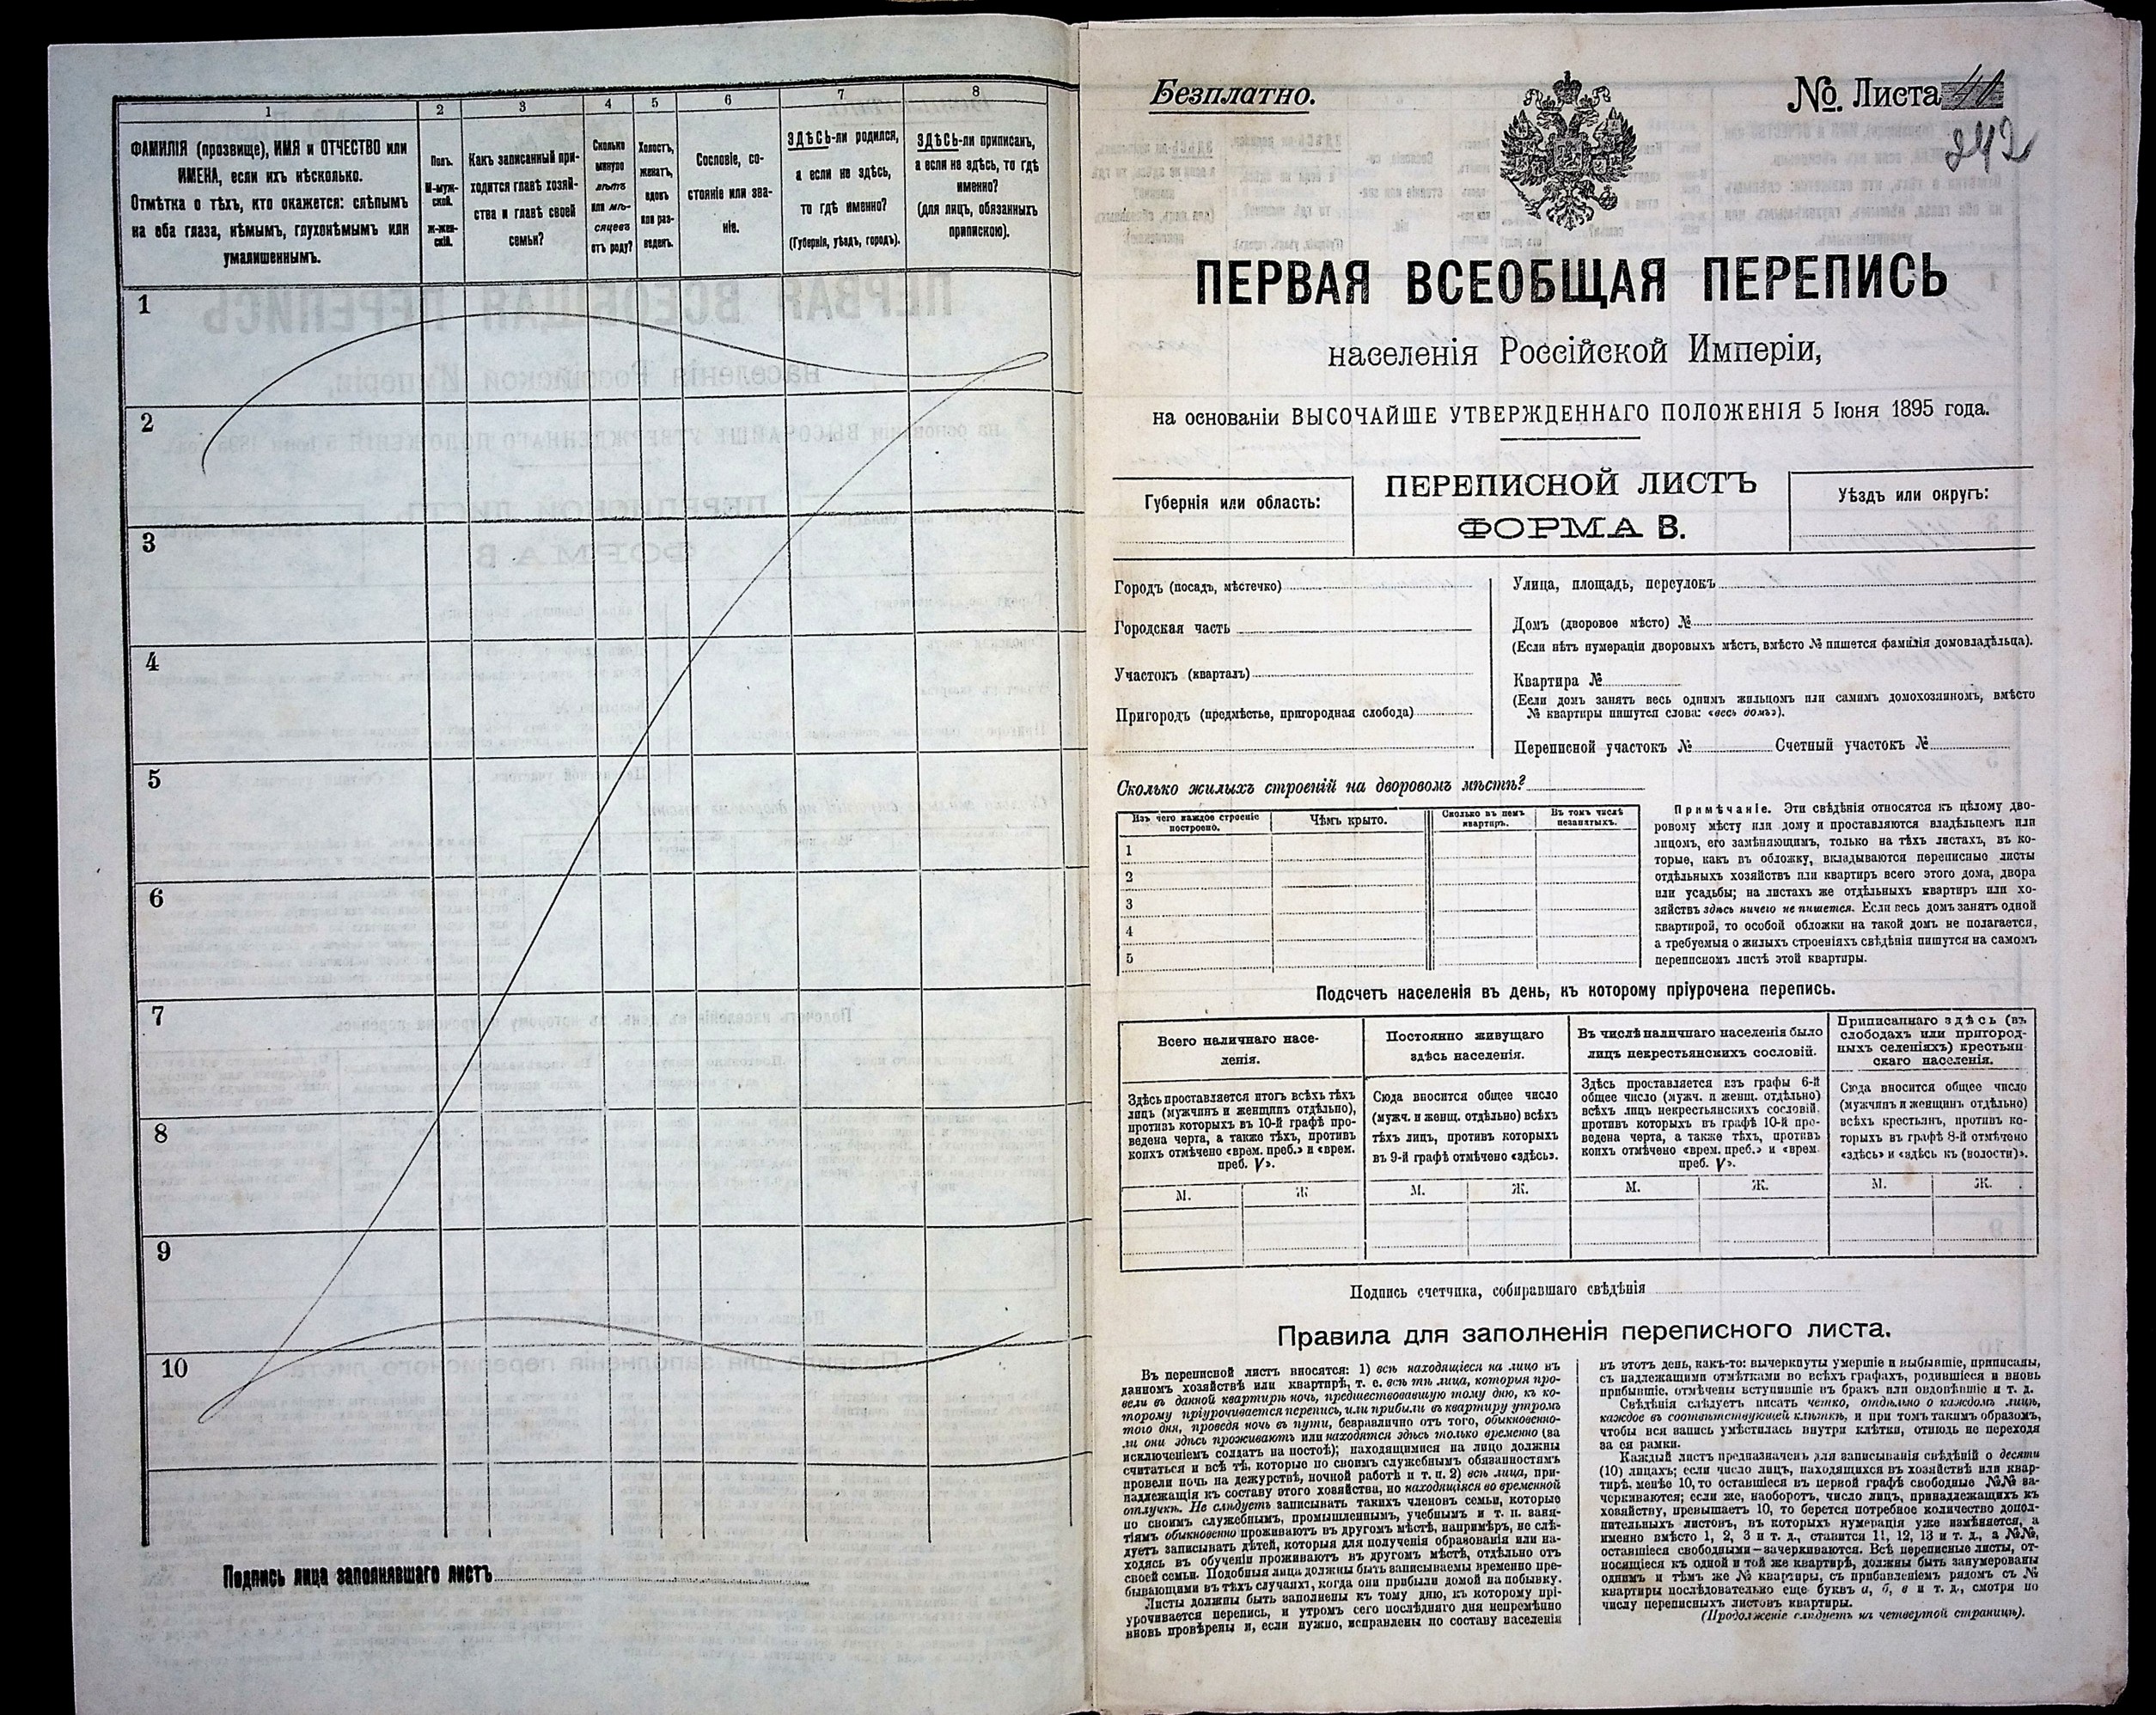 1 2 3 4 5 6 7 8
ФАМИЛІЯ (прозвище), ИМЯ и ОТЧЕСТВО или
ИМЕНА, если ихъ нѣсколько.
Отмѣтка о тѣхъ, кто окажется: слѣпымъ
на оба глаза, нѣмымъ, глухонѣмымъ или
умалишеннымъ.
Полъ.
М-муж-
ской.
Ж-жен-
скій.
Какъ записанный при-
ходится главѣ хозяй-
ства и главѣ своей
семьи?
Сколько
минуло
лѣтъ
или мѣ-
сяцевъ
отъ роду?
Холостъ,
женатъ,
вдовъ
или раз-
веденъ.
Сословіе, со-
стояніе или зва-
ніе.
ЗДѢСЬ-ли родился,
а если не здѣсь,
то гдѣ именно?
(Губернія, уѣздъ, городъ).
ЗДѢСЬ-ли приписанъ,
а если не здѣсь, то гдѣ
именно?
(для лицъ, обязанныхъ
припискою).
1
2
3
4
5
6
7
8
9
10
Подпись лица заполнявшаго листъ
Безплатно.
№ Листа
242
ПЕРВАЯ ВСЕОБЩАЯ ПЕРЕПИСЬ
населенія Россійской Имперіи,
на основаніи ВЫСОЧАЙШЕ УТВЕРЖДЕННАГО ПОЛОЖЕНІЯ 5 Іюня 1895 года.
Губернія или область:
ПЕРЕПИСНОЙ ЛИСТЪ
ФОРМА В.
Уѣздъ или округъ:
Городъ (посадъ, мѣстечко)
Городская часть
Участокъ (кварталъ)
Пригородъ (предмѣстье, пригородная слобода)
Улица, площадь, переулокъ
Домъ (дворовое мѣсто) №
(Если нѣтъ нумераціи дворовыхъ мѣстъ, вмѣсто № пишется фамилія домовладѣльца).
Квартира №
(Если домъ занятъ весь однимъ жильцомъ или самимъ домохозяиномъ, вмѣсто
№ квартиры пишутся слова: «весь домъ»).
Переписной участокъ № Счетный участокъ №
Сколько жилыхъ строеній на дворовомъ мѣстѣ?
Изъ чего каждое строеніе
построено.
Чѣмъ крыто.
Сколько въ немъ
квартиръ.
Въ томъ числѣ
незанятыхъ.
1
2
3
4
5
Примѣчаніе. Эти свѣдѣнія относятся къ цѣлому дво-
ровому мѣсту или дому и проставляются владѣльцемъ или
лицомъ, его замѣняющимъ, только на тѣхъ листахъ, въ ко-
торые, какъ въ обложку, вкладываются переписные листы
отдѣльныхъ хозяйствъ или квартиръ всего этого дома, двора
или усадьбы; на листахъ же отдѣльныхъ квартиръ или хо-
зяйствъ здѣсь ничего не пишется. Если весь домъ занятъ одной
квартирой, то особой обложки на такой домъ не полагается,
а требуемыя о жилыхъ строеніяхъ свѣдѣнія пишутся на самомъ
переписномъ листѣ этой квартиры.
Подсчетъ населенія въ день, къ которому пріурочена перепись.
Всего наличнаго насе-
ленія.
Постоянно живущаго
здѣсь населенія.
Въ числѣ наличнаго населенія было
лицъ некрестьянскихъ сословій.
Приписаннаго здѣсь (въ
слободахъ или пригород-
ныхъ селеніяхъ) крестьян-
скаго населенія.
Здѣсь проставляется итогъ всѣхъ тѣхъ
лицъ (мужчинъ и женщинъ отдѣльно),
противъ которыхъ въ 10-й графѣ про-
ведена черта, а также тѣхъ, противъ
коихъ отмѣчено «врем. преб.» и «врем.
преб. V».
Сюда вносится общее число
(мужч. и женщ. отдѣльно) всѣхъ
тѣхъ лицъ, противъ которыхъ
въ 9-й графѣ отмѣчено «здѣсь».
Здѣсь проставляется изъ графы 6-й
общее число (мужч. и женщ. отдѣльно)
всѣхъ лицъ некрестьянскихъ сословій,
противъ которыхъ въ графѣ 10-й про-
ведена черта, а также тѣхъ, противъ
коихъ отмѣчено «врем. преб.» и «врем
преб. V».
Сюда вносится общее число
(мужчинъ и женщинъ отдѣльно)
всѣхъ крестьянъ, противъ ко-
торыхъ въ графѣ 8-й отмѣчено
«здѣсь» и «здѣсь къ (волости)».
М. Ж М. Ж. М. Ж. М. Ж.
Подпись счетчика, собиравшаго свѣдѣнія
Правила для заполненія переписного листа.
Въ переписной листъ вносятся: 1) всѣ находящіеся на лицо въ
данномъ хозяйствѣ или квартирѣ, т. е. всѣ тѣ лица, которыя про-
вели въ данной квартирѣ ночь, предшествовавшую тому дню, къ ко-
торому пріурочивается перепись, или прибыли въ квартиру утромъ
того дня, проведя ночь въ пути, безразлично отъ того, обыкновенно-
ли они здѣсь проживаютъ или находятся здѣсь только временно (за
исключеніемъ солдатъ на постоѣ); находящимися на лицо должны
считаться и всѣ тѣ, которые по своимъ служебнымъ обязанностямъ
провели ночь на дежурствѣ, ночной работѣ и т. п. 2) всѣ лица, при-
надлежащія къ составу этого хозяйства, но находящіяся во временной
отлучкѣ. Не слѣдуетъ записывать такихъ членовъ семьи, которые
по своимъ служебнымъ, промышленнымъ, учебнымъ и т. п. заня-
тіямъ обыкновенно проживаютъ въ другомъ мѣстѣ, напримѣръ, не слѣ-
дуетъ записывать дѣтей, которыя для полученія образованія или на-
ходясь въ обученіи проживаютъ въ другомъ мѣстѣ, отдѣльно отъ
своей семьи. Подобныя лица должны быть записываемы временно пре-
бывающими въ тѣхъ случаяхъ, когда они прибыли домой на побывку.
Листы должны быть заполнены къ тому дню, къ которому прі-
урочивается перепись, и утромъ сего послѣдняго дня непремѣнно
вновь провѣрены и, если нужно, исправлены по составу населенія
въ этотъ день, какъ-то: вычеркнуты умершіе и выбывшіе, приписаны,
съ надлежащими отмѣтками во всѣхъ графахъ, родившіеся и вновь
прибывшіе, отмѣчены вступившіе въ бракъ или овдовѣвшіе и т. д.
Свѣдѣнія слѣдуетъ писать четко, отдѣльно о каждомъ лицѣ,
каждое въ соотвѣтствующей клѣткѣ, и при томъ такимъ образомъ,
чтобы вся запись умѣстилась внутри клѣтки, отнюдь не переходя
за ея рамки.
Каждый листъ предназначенъ для записыванія свѣдѣній о десяти
(10) лицахъ; если число лицъ, находящихся въ хозяйствѣ или квар-
тирѣ, менѣе 10, то оставшіеся въ первой графѣ свободные №№ за-
черкиваются; если же, наоборотъ, число лицъ, принадлежащихъ къ
хозяйству, превышаетъ 10, то берется потребное количество допол-
нительныхъ листовъ, въ которыхъ нумерація уже измѣняется, а
именно вмѣсто 1, 2, 3 и т. д., ставится 11, 12, 13 и т. д., а №№,
оставшіеся свободными—зачеркиваются. Всѣ переписные листы, от-
носящіеся къ одной и той же квартирѣ, должны быть занумерованы
однимъ и тѣмъ же № квартиры, съ прибавленіемъ рядомъ съ №
квартиры послѣдовательно еще буквъ а, б, в и т. д., смотря по
числу переписныхъ листовъ квартиры.
(Продолженіе слѣдуетъ на четвертой страницѣ).